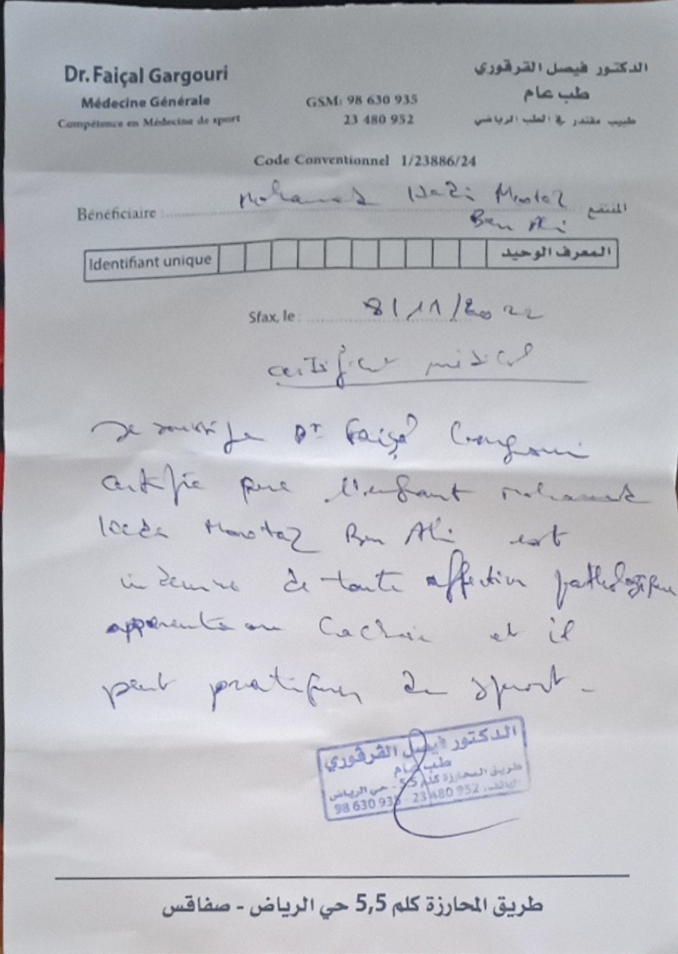 Dr. Faiçal Gargouri
Médecine Générale
Compétence en Médecine de sport
GSM: 98 630 935
23 480 952
الدكتور فيصل القرقوري
طب عام
طبيب مقتدر في الطب الرياضي
Code Conventionnel 1/23886/24
Bénéficiaire : Mohamed المنتفع
Ben Ali
Identifiant unique المعرف الوحيد
Sfax, le : 8/11/2022
certificat médical
Je soussigné Dr Faiçal Gargouri
certifie que l'enfant Mohamed
Ben Ali est
indemne de toute affection pathologique
apparente ou cachée et il
peut pratiquer du sport.
الدكتور فيصل القرقوري
طب عام
طريق المحارزة كلم 5,5 - حي الرياض
98 630 935 23 480 952
طريق المحارزة كلم 5,5 حي الرياض - صفاقس